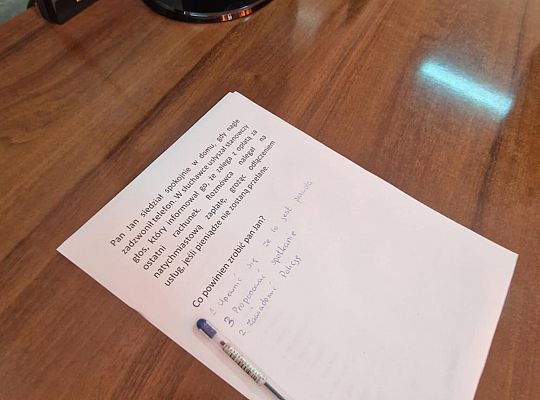 Pan Jan siedział spokojnie w domu, gdy nagle
zadzwonił telefon. W słuchawce usłyszał stanowczy
głos, który informował go, że zalega z opłatą za
ostatni rachunek. Rozmówca nalegał na
natychmiastową zapłatę, grożąc odłączeniem
usług, jeśli pieniądze nie zostaną przelane.
Co powinien zrobić pan Jan?
1 Upewnić się że to jest prawda
3. Proponować spotkanie
2 zawiadomić Policję